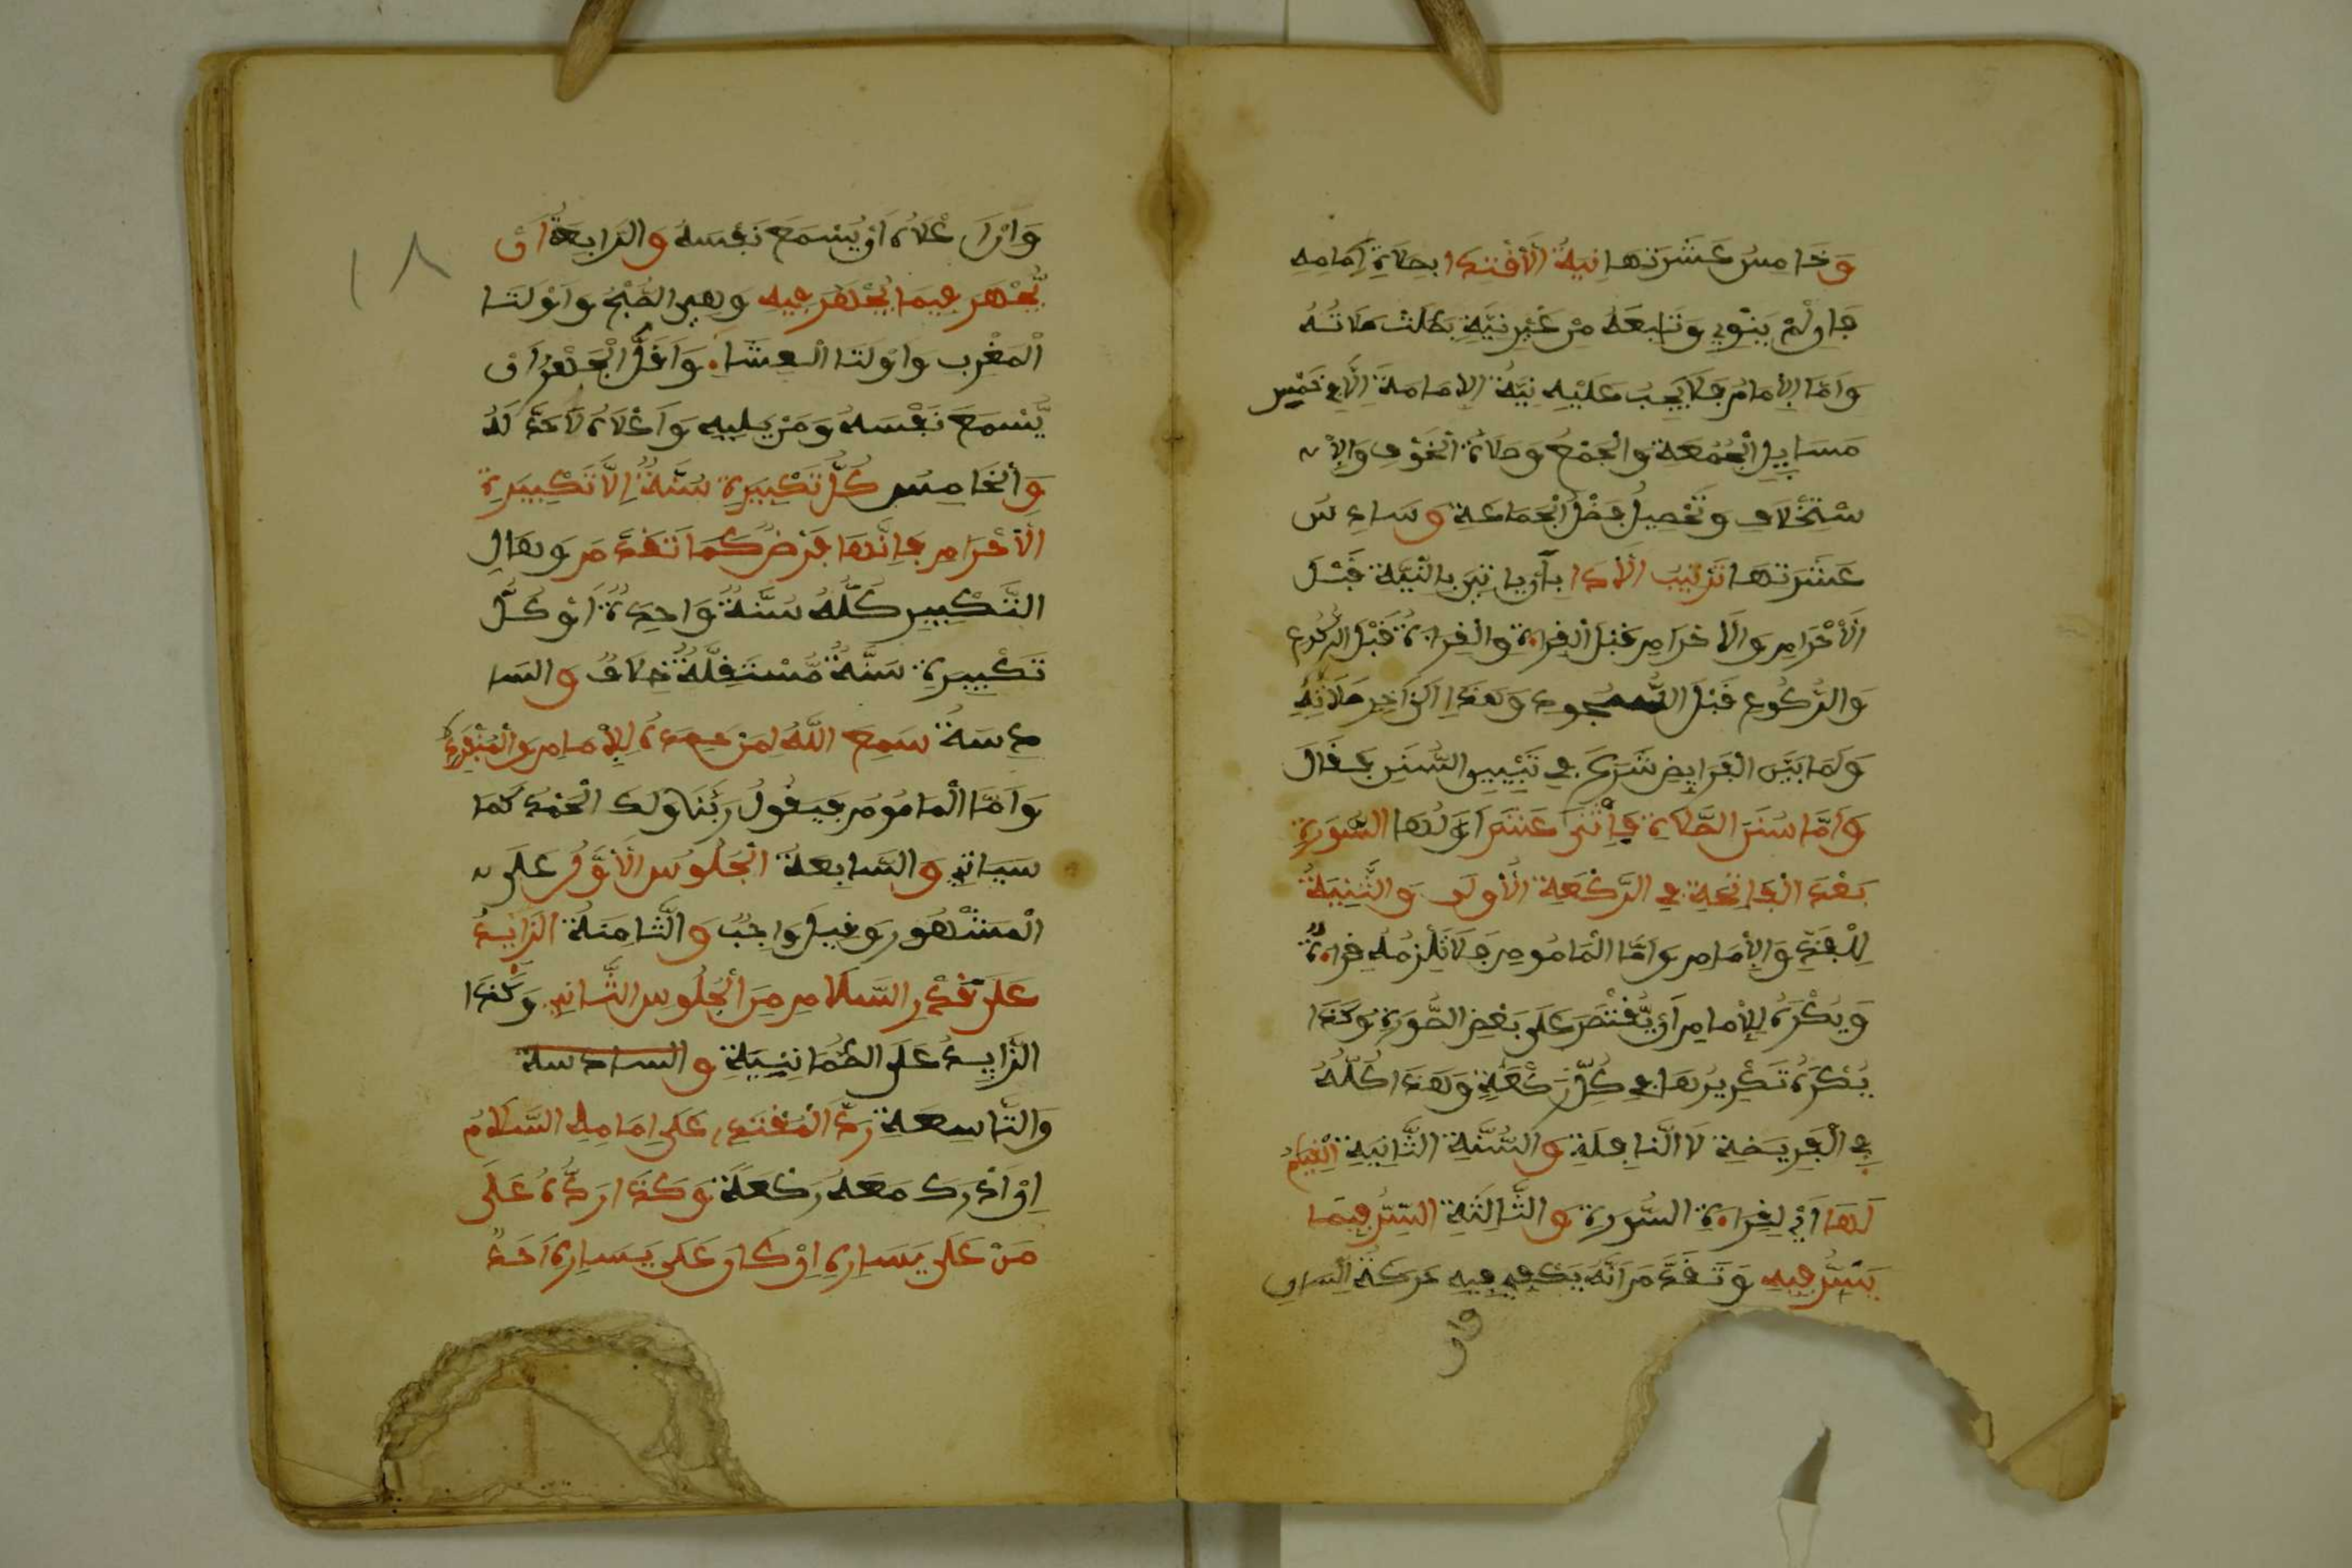 وَخَامِسُ عَشَرَتهَا نِيةُ الَاقْتِدَا بصلاةِ إمَامِهِ
فَإن لَّمْ يَنْوِي وَتَابعَهُ مِنْ غَيْرِ نيَّةٍ بَطلَتْ صَلَاتُهُ
وَأمّا الإمَامُ فَلَا يَجِبُ عَلَيْهِ نِيَّةُ الإمَامَةِ إلَّا فِي خَمْسِ
مَسَايِلِ الْجُمُعَةِ والْجَمْعُ وَصَلَاةُ الْخَوْفِ وَالاِ
سْتِخْلَافِ وَتَحْصِيلِ فَضْلُ الْجَمَاعَةِ وَسَادِسُ
عَشَرَتهَا تَرْتيبُ الَادَا بِأن ياتِيَ بالنيَّةِ قَبْلَ
الَاحْرَامِ وَالَاحْرَامِ قَبْلَ القِرَاءةِ والْقِرَاءةُ قَبْلَ الرُّكُوعِ
وَالرُّكُوعِ قَبْلَ السُّجُودِ وَهَكَذَا إلَى ءَاخِرِ صَلَاتِهِ
وَلَمَّا بَيَّنَ الْفَرَايِضَ شَرَعَ فِي تَبْيِينِ السُّنَنِ فَقَالَ
وَأمَّا سُنَنَ الصَّلَاةِ فَاثْنَى عَشَرَ أوَّلُهَا السُّورَةِ
بَعْدَ الْفَاتِحَةِ فِي الرَّكْعَةِ الْأُولَى وَالثَّنِيَةُ
لِلْفَذِّ وَالإمَامِ وَأمَّا الْمَامُومِ فَلَا تَلْزمُهُ قِرَاءةٌ
وَيُكْرَهُ لِلإمَامِ أن يَّقْتَصِرَ عَلَى بَعْضِ السُّورَةِ وَكَذَا
يُكْرَهُ تَكْرِيرُهَا فِي كُلِّ رَكْعَةٍ وَهَذَا كُلُّهُ
فِي الْفَرِيضَةِ لَا النَّافِلَةِ وَالسُّنَّةِ الثَّانِيَةِ الْقِيَامُ
لَهَا أيْ لِقِرَاءةِ السُّورَةِ وَالثَّالِثَةِ السِّرُّ فِيمَا
يُسَرُّ فِيهِ وَتَقَدَّمَ أنَّهُ يَكْفِي فِيهِ حَرَكَةُ اللسانِ
وان
١٨
وَأنَّ أعْلَاهُ أن يُسْمَعَ نَفْسَهُ وَالرَابِعَةُ أن
يَّجْهَرَ فِيمَا يُجْهَرُ فِيهِ وَهِيَ الصُّبْحُ وَأوْلَتَا
الْمَغْرِب وَأوْلَتَا الْعِشَاء وَأقَلُّ الْجَهْرُ أن
يُّسْمَعَ نَفْسَهُ وَمَنْ يَلِيهِ وَأعْلَاهُ لَا حَدَّ لَهُ
وَالْخَامِسُ كُلُّ تَكْبِيرَةِ سُنَّةٌ إلَّا تَكْبِيرَةِ
الَاحْرَامِ فَإنَّهَا فَرْضٌ كَمَا تَقَدَّمَ وَهَلِ
التَّكْبِيرِ كُلُّهُ سُنَّةٌ وَاحِدَةٌ أوْ كُلُّ
تَكْبِيرَةٍ سُنَّةٌ مُّسْتَقِلَّةٌ خِلَافٌ وَالسَّا
دِسَةُ سَمِعَ اللَّهُ لِمَنْ حَمِدَهُ لِلإمَامِ وَالْمُنْفَرِدُ
وَأمَّا الْمَامُومُ فَيَقُولُ رَبَّنَا وَلَكَ الْحَمْدُ كَمَا
سَيَاتِي وَالسَّابِعَةُ الْجُلُوسُ الْأَوَّلُ عَلَى
الْمَشْهُورِ وَقِيلَ وَاجِبٌ وَالثَّامِنَةُ الزَّايِدُ
عَلَى قَدْرِ السَّلَامِ مِنَ الْجُلُوسِ الثَّانِي وَكَذَا
الزَّايِدُ عَلَى الطُّمَانِينَةِ والسادسة
وَالتَّاسِعَةِ رَدُّ الْمُقْتَدِي عَلَى إمَامِهِ السَّلَامُ
إنْ أدْرَكَ مَعَهُ رَكْعَةً وَكَذَا رَدُّهُ عَلَى
مَنْ عَلَى يَسَارِهِ إنْ كَانَ عَلَى يَسَارِهِ أحَدٌ